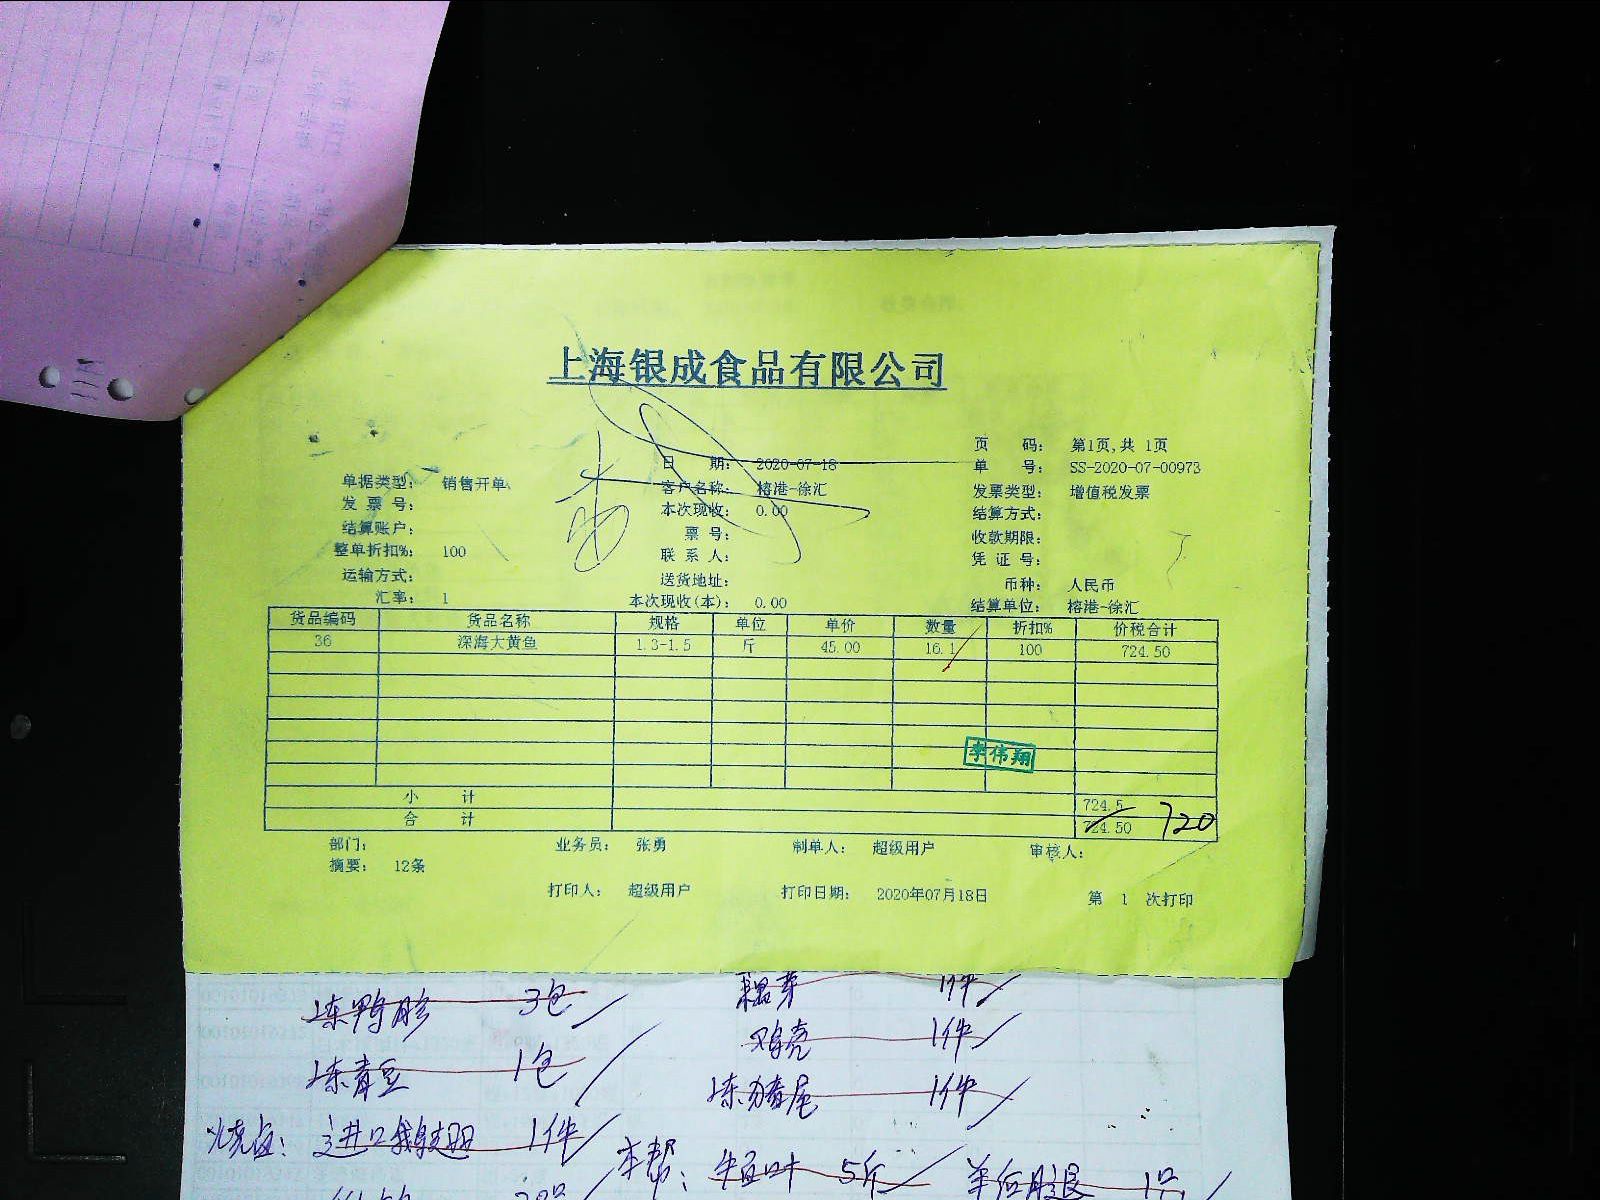 上海银成食品有限公司
页 码: 第1页,共 1页
日 期: 2020-07-18 单 号: SS-2020-07-00973
单据类型: 销售开单 客户名称: 榕港-徐汇 发票类型: 增值税发票
发 票 号: 本次现收: 0.00 结算方式:
结算账户: 票 号: 收款期限:
整单折扣%: 100 联 系 人: 凭 证 号:
运输方式: 送货地址: 币种: 人民币
汇率: 1 本次现收(本): 0.00 结算单位: 榕港-徐汇
货品编码 货品名称 规格 单位 单价 数量 折扣% 价税合计
36 深海大黄鱼 1.3-1.5 斤 45.00 16.1 100 724.50
李伟翔
小 计 724.5
合 计 724.50 720
部门: 业务员: 张勇 制单人: 超级用户 审核人:
摘要: 12条
打印人: 超级用户 打印日期: 2020年07月18日 第 1 次打印
冻鸭胗 3包 1件
冻青豆 1包 鸡壳 1件
冻猪尾 1件
烧卤: 进口鹅翅 1件
本帮: 5斤